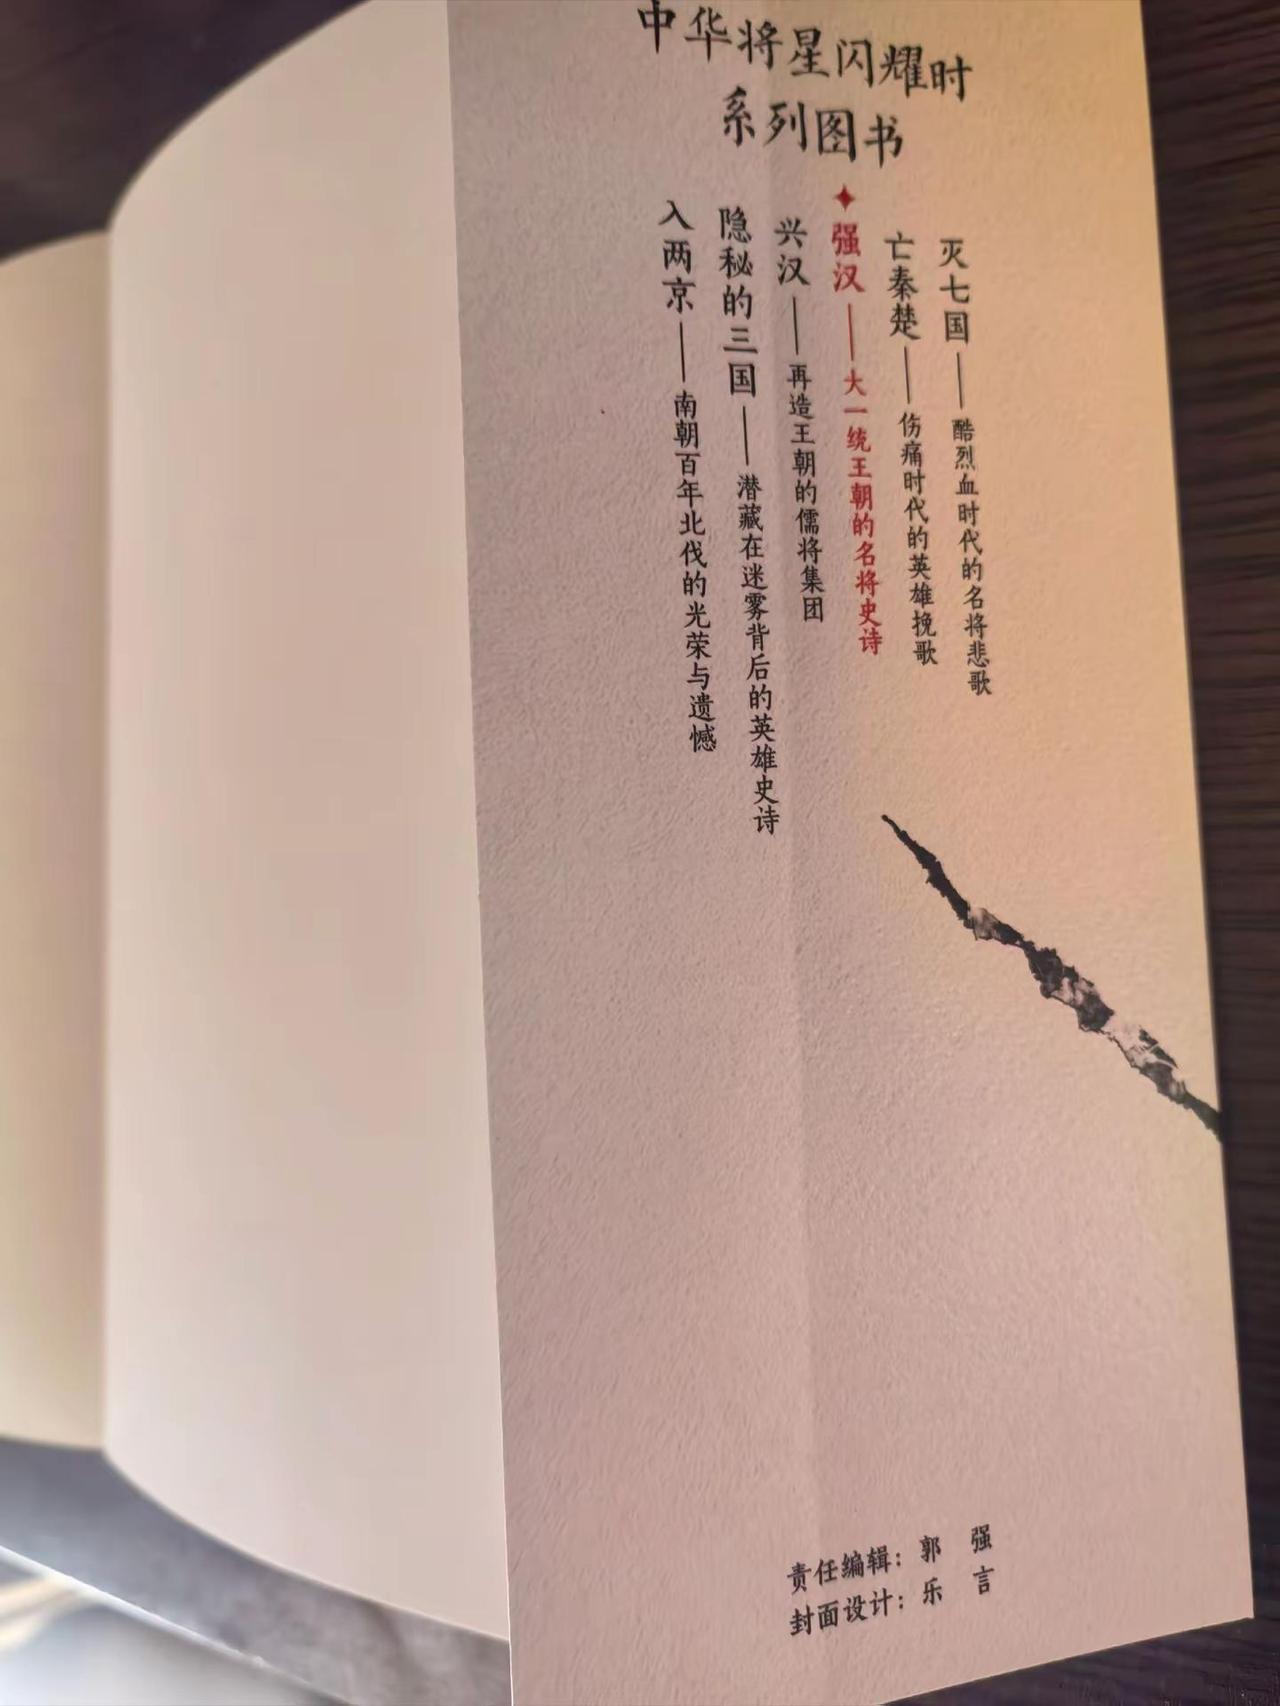 中华将星闪耀时
系列图书
灭七国——酷烈血时代的名将悲歌
亡秦楚——伤痛时代的英雄挽歌
✦强汉——大一统王朝的名将史诗
兴汉——再造王朝的儒将集团
隐秘的三国——潜藏在迷雾背后的英雄史诗
入两京——南朝百年北伐的光荣与遗憾
责任编辑：郭　强
封面设计：乐　言